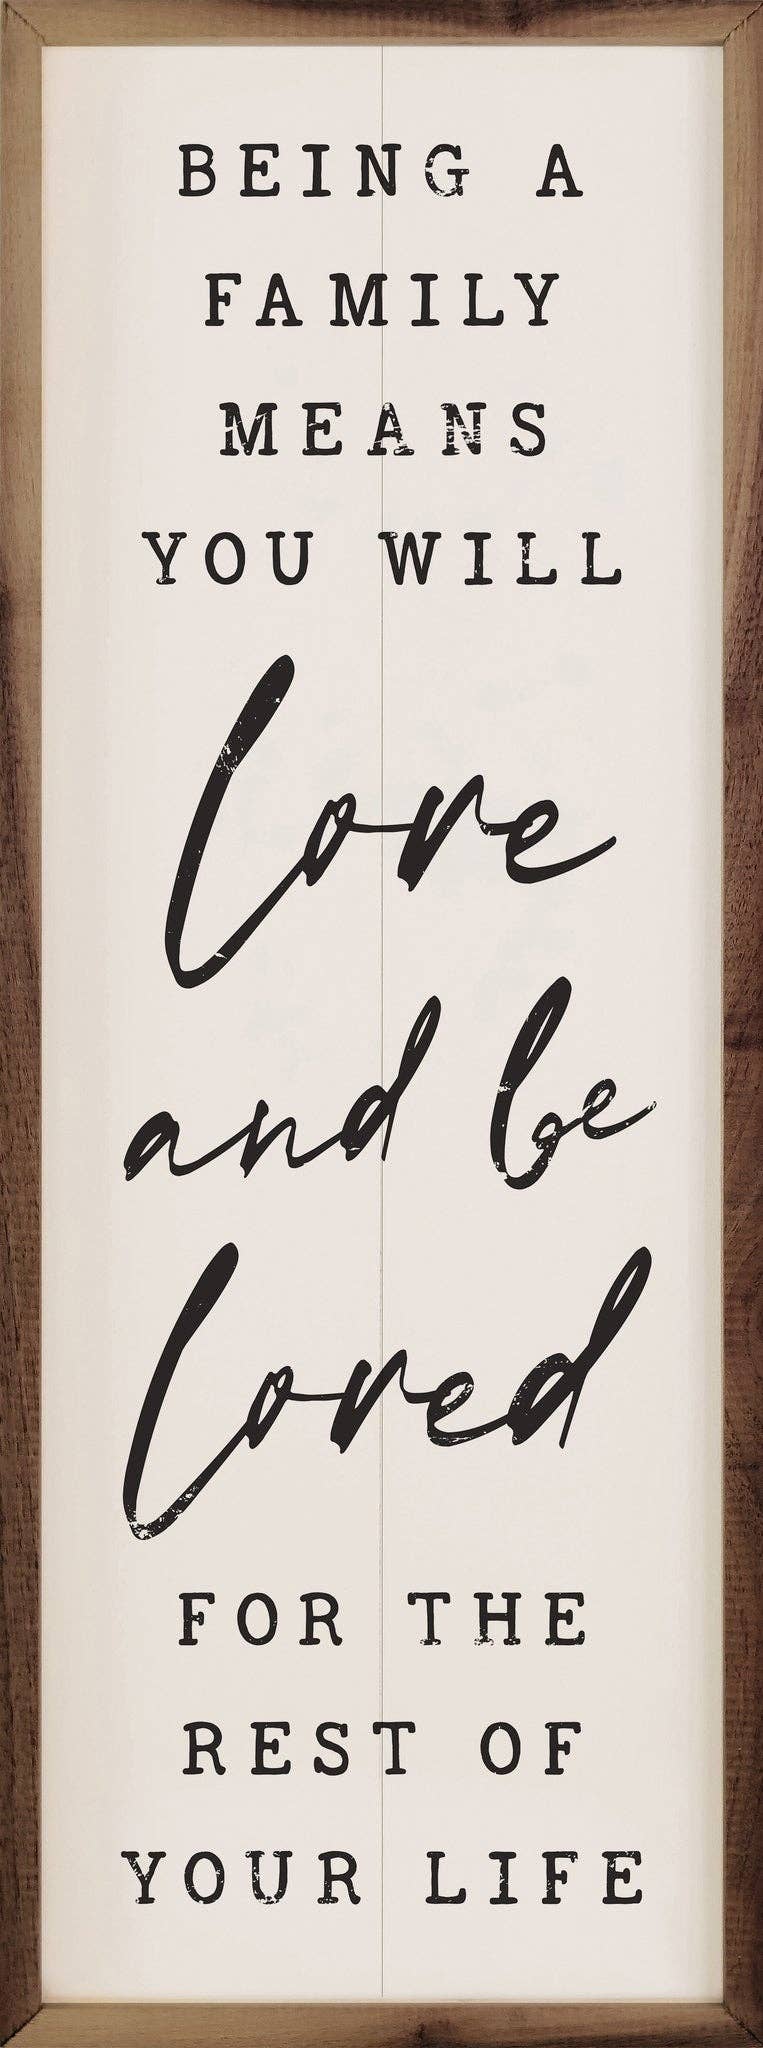 BEING A
FAMILY
MEANS
YOU WILL
Love
and be
Loved
FOR THE
REST OF
YOUR LIFE